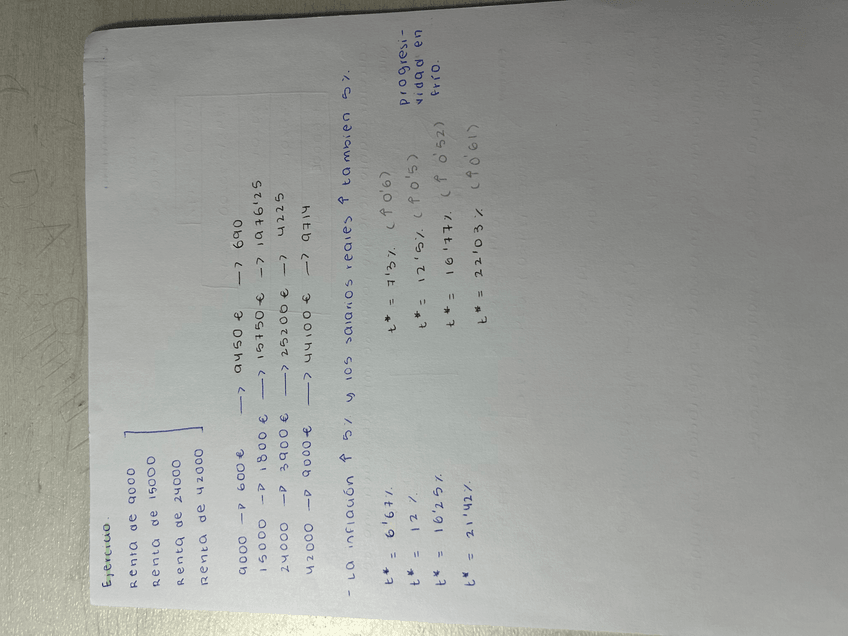 Ejercicio.
Renta de 9000
Renta de 15000
Renta de 24000
Renta de 42000
9000 → 600 € → 9450 € → 690
15000 → 1800 € → 15750 € → 1976'25
24000 → 3900 € → 25200 € → 4225
42000 → 9000 € → 44100 € → 9714
- La inflación ↑ 5% y los salarios reales ↑ tambien 5%.
t* = 6'67% t* = 7'3% (↑ 0'6)
t* = 12% t* = 12'5% (↑ 0'5)
t* = 16'25% t* = 16'77% (↑ 0'52)
t* = 21'42% t* = 22'03% (↑ 0'61)
progresi-
vidad en
frío.